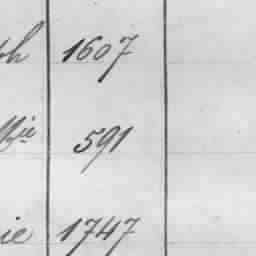 ph 1607
Mie 591
ie 1747